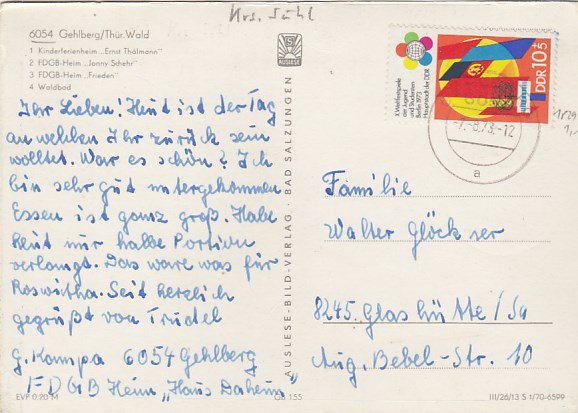 Krs. Suhl
6054 Gehlberg/Thür. Wald
1 Kinderferienheim „Ernst Thälmann"
2 FDGB-Heim „Jonny Schehr"
3 FDGB-Heim „Frieden"
4 Waldbad
AUSLESE
X. Weltfestspiele
der Jugend
und Studenten
Berlin 1973
Hauptstadt der DDR
DDR 10+5
-7.-8.73.-12
a
Ihr Lieben! Heut ist der Tag
an welchen Ihr zurück sein
wolltet. War es schön? Ich
bin sehr gut untergekommen
Essen ist ganz groß. Habe
heut nur halbe Portion
verlangt. Das wäre was für
Roswitha. Seit herzlich
gegrüßt von Trudel
G. Kumpa 6054 Gehlberg
FDGB Heim „Haus Daheim"
AUSLESE-BILD-VERLAG · BAD SALZUNGEN
Familie
Walter Glöckner
8245 Glashütte/Sa
Aug. Bebel-Str. 10
EVP 0,20 M
GB 155
III/26/13 S 1/70-6599